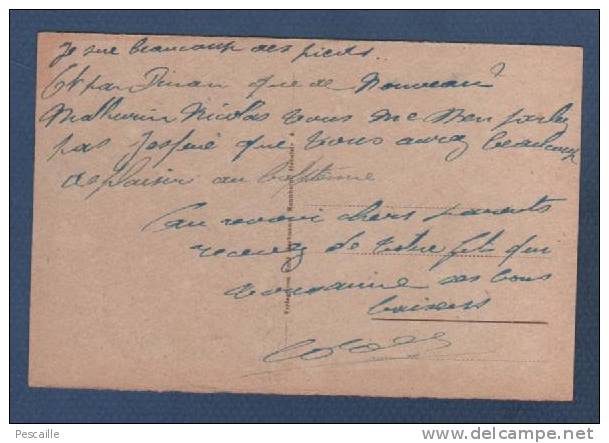 je sue beaucoup des pieds.
Et par Dinan que de Nouveau?
Mathurin Nicolas vous me n'en parlez
pas J'espère que vous aurez beaucoup
de plaisir au baptême
au revoir chers parents
recevez de votre fils qui
vous aime ses bons
baisers
Pescaille
http://www.delcampe.net